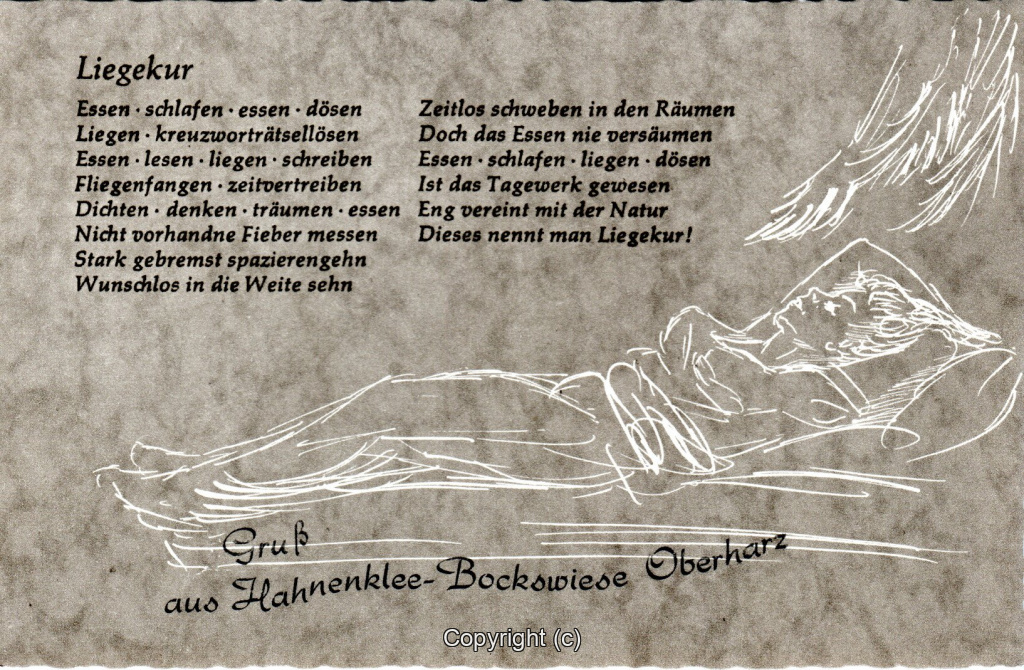 Liegekur
Essen · schlafen · essen · dösen
Liegen · kreuzworträtsellösen
Essen · lesen · liegen · schreiben
Fliegenfangen · zeitvertreiben
Dichten · denken · träumen · essen
Nicht vorhandne Fieber messen
Stark gebremst spazierengehn
Wunschlos in die Weite sehn
Zeitlos schweben in den Räumen
Doch das Essen nie versäumen
Essen · schlafen · liegen · dösen
Ist das Tagewerk gewesen
Eng vereint mit der Natur
Dieses nennt man Liegekur!
Gruß
aus Hahnenklee-Bockswiese Oberharz
Copyright (c)